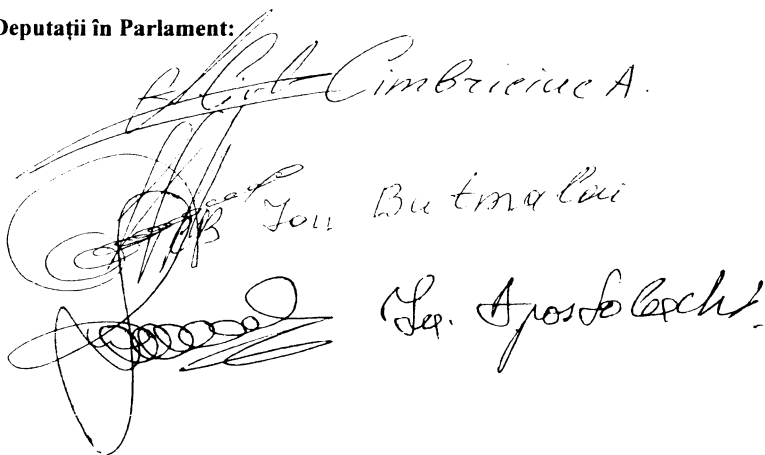 Deputații în Parlament:
Cimbriciuc A.
Ion Butmalai
Apostolachi